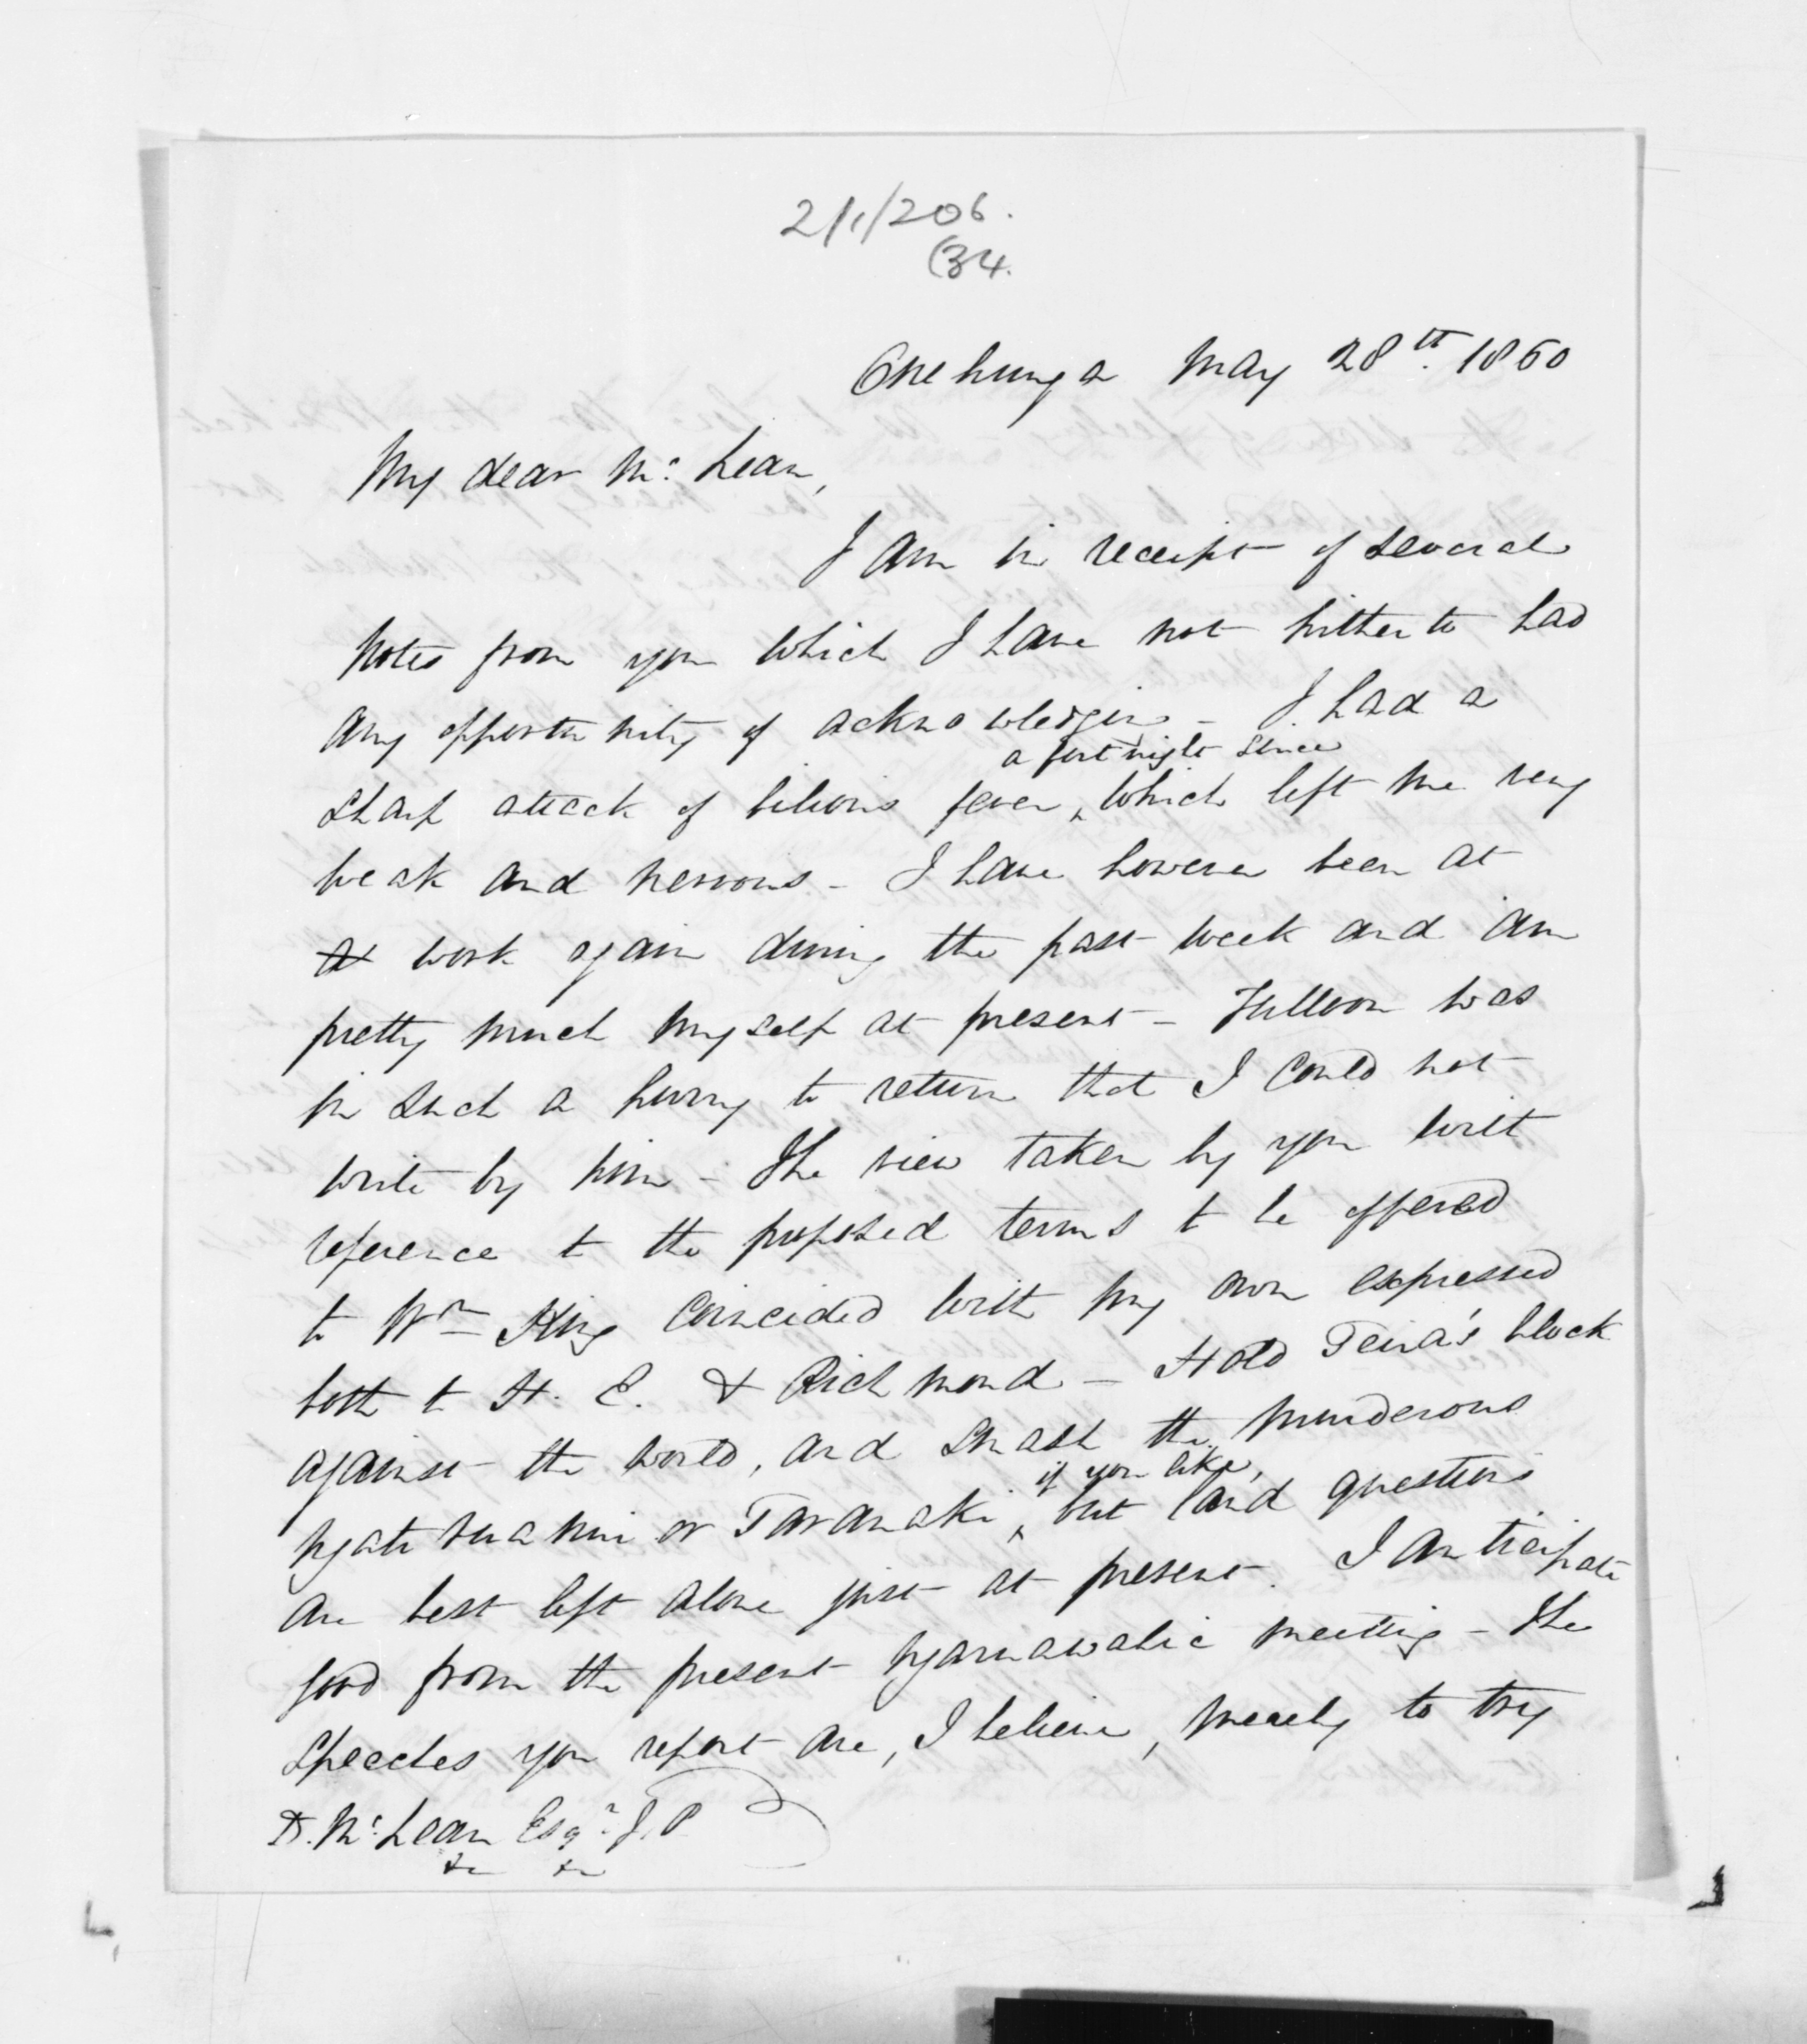 2/1/206.
(34.
Onehunga May 28th. 1860
My dear Mc. Lean,
I am in receipt of several
notes from you which I have not hitherto had
any opportunity of acknowledging - I had a
a fortnight since
sharp attack of bilious fever, which left me very
weak and nervous - I have however been at
at work again during the past week and am
pretty much myself at present - Fulloon was
in such a hurry to return that I could not
write by him - The view taken by you with
reference to the proposed terms to be offered
to Wm King coincided with my own expressed
both to H. E. & Richmond - Hold Teira's block
against the world, and smash the murderous
if you like,
Ngatiruanui or Taranaki, but land questions
are best left alone just at present. I anticipate
good from the present Ngaruawahia meeting - The
speeches you report are, I believe, merely to try
D. Mc. Lean Esqr. J.P.
&c &c